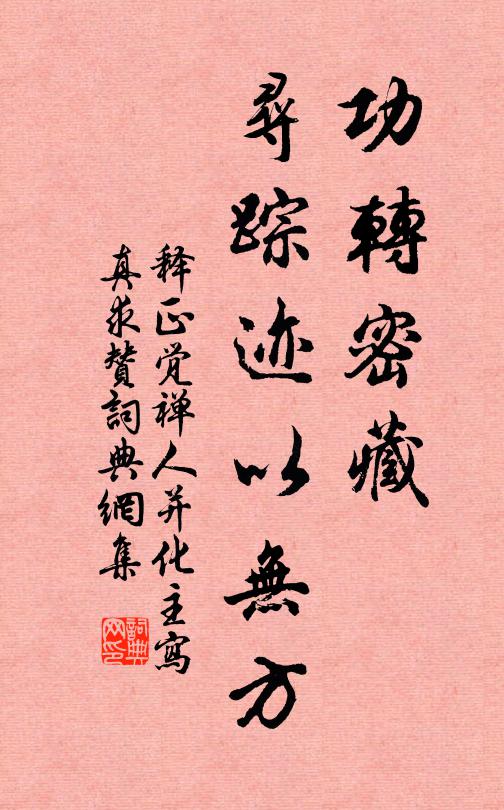 功轉密藏
尋踪迹以無方
释正觉禅人并化主寫
真求贊詞典網集
詞典網印